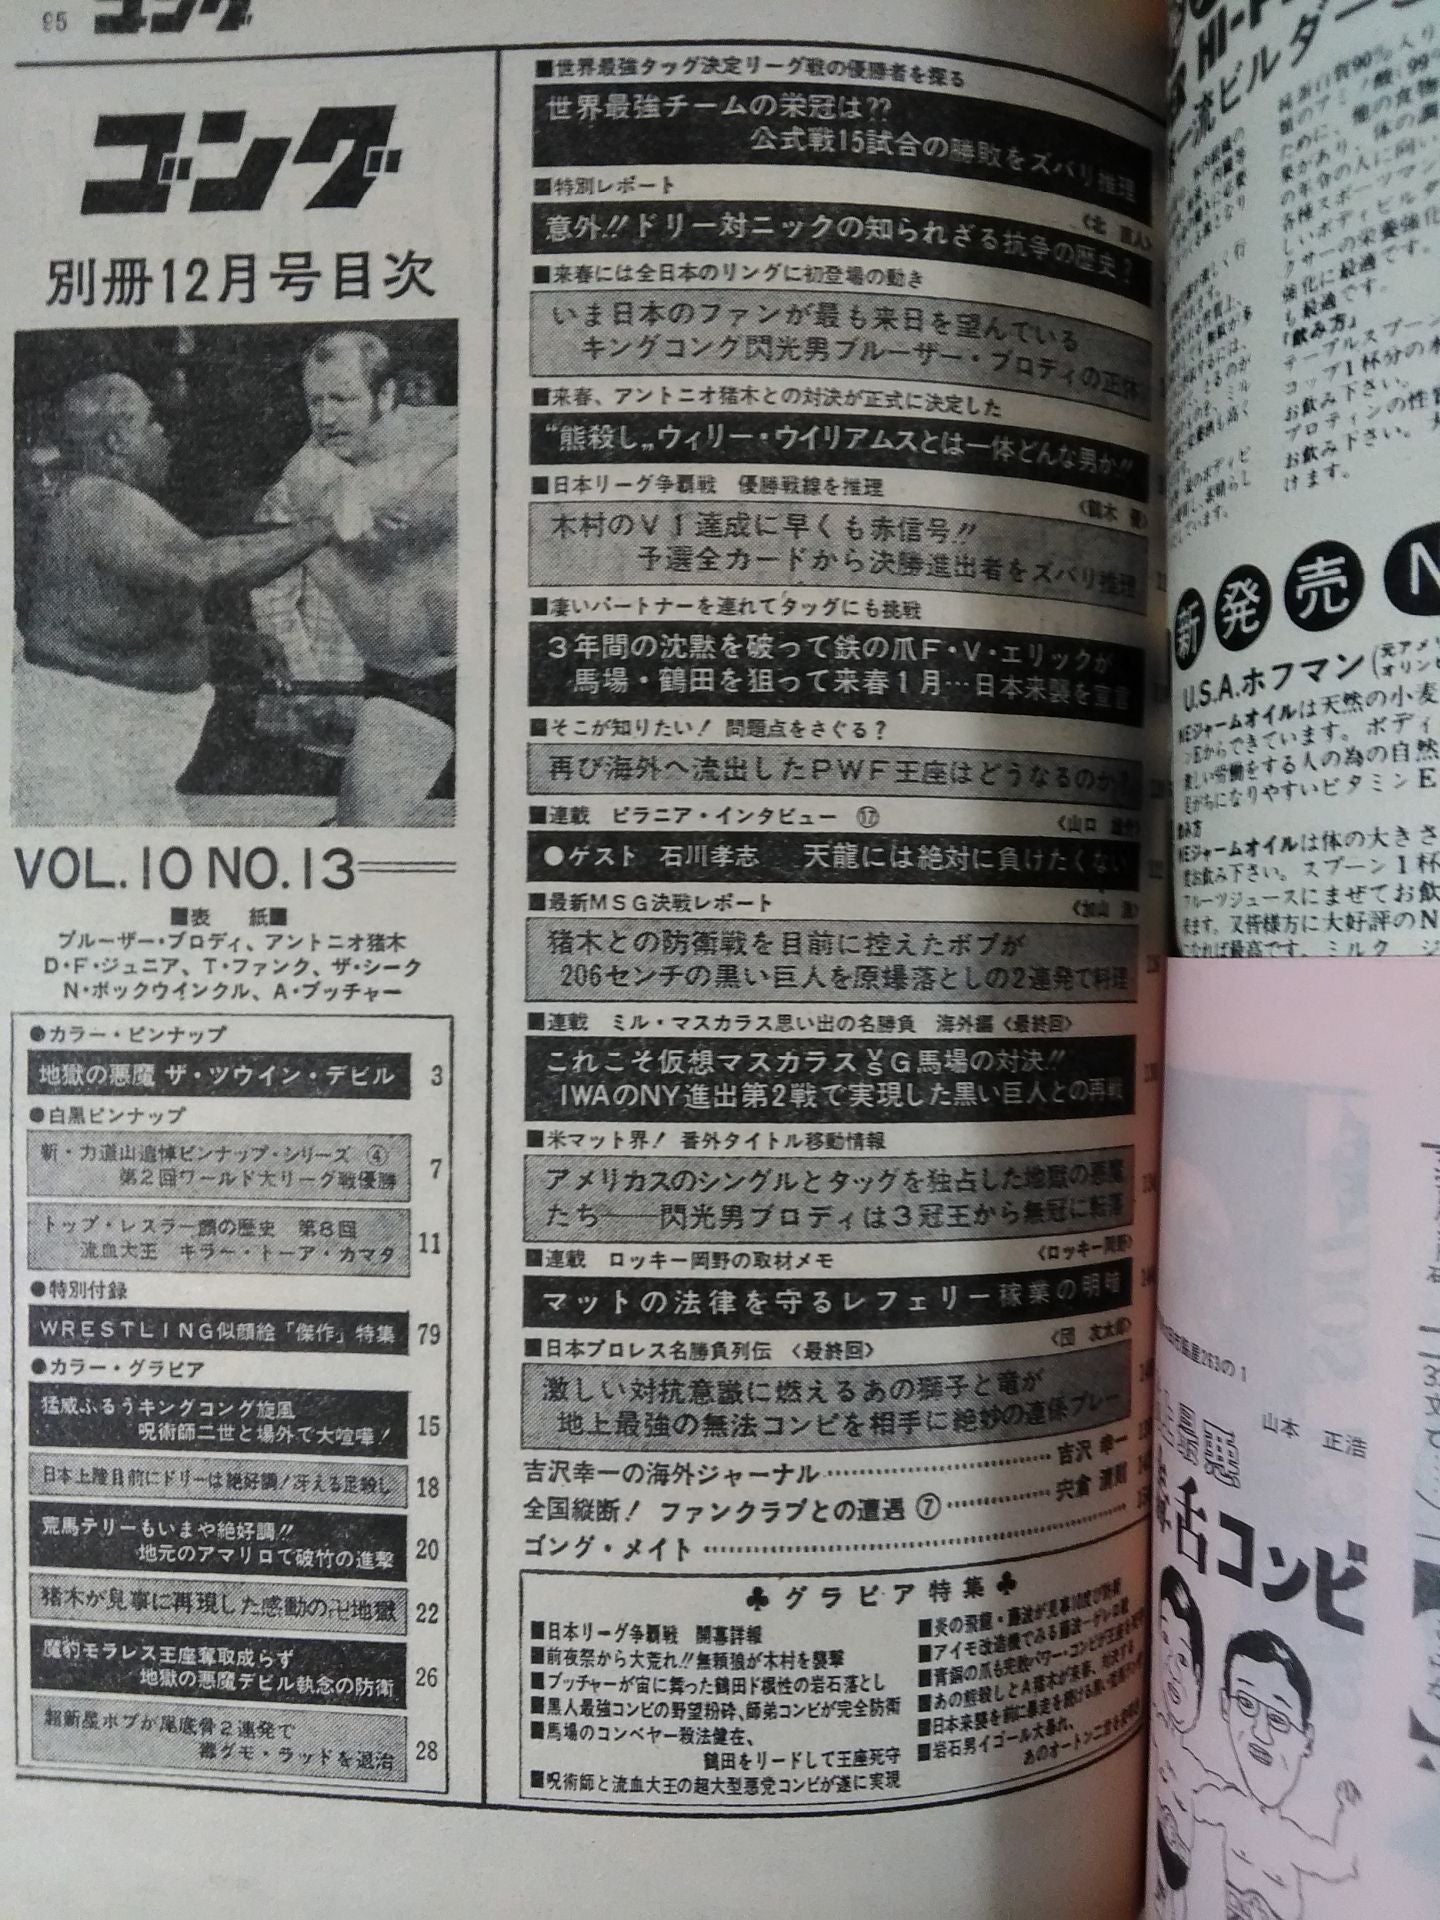 95 ゴング
ゴング
別冊12月号目次
VOL.10 NO.13
■表　紙■
ブルーザー・ブロディ、アントニオ猪木
D・F・ジュニア、T・ファンク、ザ・シーク
N・ボックウインクル、A・ブッチャー
●カラー・ピンナップ
地獄の悪魔 ザ・ツウイン・デビル 3
●白黒ピンナップ
新・力道山追悼ピンナップ・シリーズ ④
第2回ワールド大リーグ戦優勝 7
トップ・レスラー顔の歴史　第8回
流血大王　キラー・トーア・カマタ 11
●特別付録
WRESTLING似顔絵「傑作」特集 79
●カラー・グラビア
猛威ふるうキングコング旋風
呪術師二世と場外で大喧嘩! 15
日本上陸目前にドリーは絶好調!冴える足殺し 18
荒馬テリーもいまや絶好調!!
地元のアマリロで破竹の進撃 20
猪木が見事に再現した感動の卍地獄 22
魔豹モラレス王座奪取成らず
地獄の悪魔デビル執念の防衛 26
超新星ボブが尾底骨2連発で
毒グモ・ラッドを退治 28
■世界最強タッグ決定リーグ戦の優勝者を探る
世界最強チームの栄冠は??
公式戦15試合の勝敗をズバリ推理
■特別レポート
意外!!ドリー対ニックの知られざる抗争の歴史?
■来春には全日本のリングに初登場の動き
いま日本のファンが最も来日を望んでいる
キングコング閃光男ブルーザー・ブロディの正体
■来春、アントニオ猪木との対決が正式に決定した
“熊殺し„ウィリー・ウイリアムスとは一体どんな男か!!
■日本リーグ争覇戦　優勝戦線を推理
木村のV1達成に早くも赤信号!!
予選全カードから決勝進出者をズバリ推理
■凄いパートナーを連れてタッグにも挑戦
3年間の沈黙を破って鉄の爪F・V・エリックが
馬場・鶴田を狙って来春1月…日本来襲を宣言
■そこが知りたい! 問題点をさぐる?
再び海外へ流出したPWF王座はどうなるのか?
■連載　ピラニア・インタビュー　⑰
●ゲスト　石川孝志　天龍には絶対に負けたくない
■最新MSG決戦レポート
猪木との防衛戦を目前に控えたボブが
206センチの黒い巨人を原爆落としの2連発で料理
■連載　ミル・マスカラス思い出の名勝負　海外編〈最終回〉
これこそ仮想マスカラスVSG馬場の対決!!
IWAのNY進出第2戦で実現した黒い巨人との再戦
■米マット界! 番外タイトル移動情報
アメリカスのシングルとタッグを独占した地獄の悪魔
たち――閃光男ブロディは3冠王から無冠に転落
■連載　ロッキー岡野の取材メモ 〈ロッキー岡野〉
マットの法律を守るレフェリー稼業の明暗
■日本プロレス名勝負列伝　〈最終回〉 〈団　友太郎〉
激しい対抗意識に燃えるあの獅子と竜が
地上最強の無法コンビを相手に絶妙の連係プレー
吉沢幸一の海外ジャーナル……吉沢 幸一
全国縦断! ファンクラブとの遭遇 ⑦……宍倉 清則
ゴング・メイト……
♣グラビア特集♣
■日本リーグ争覇戦　開幕詳報
■前夜祭から大荒れ!!無頼狼が木村を襲撃
■ブッチャーが宙に舞った鶴田ド根性の岩石落とし
■黒人最強コンビの野望粉砕、師弟コンビが完全防衛
■馬場のコンベヤー殺法健在、
鶴田をリードして王座死守
■呪術師と流血大王の超大型悪党コンビが遂に実現
■炎の飛龍・藤波が見事10度び防衛
■日本来襲を前に暴走を続ける黒い
■岩石男イゴール大暴れ、
新発売
U.S.A.ホフマン
NEジャームオイルは天然の小麦
ンEからできています。ボディ
激しい労働をする人の為の自然
足がちになりやすいビタミンE
飲み方
NEジャームオイルは体の大きさ
度お飲み下さい。スプーン1杯
フルーツジュースにまぜてお飲
来ます。又皆様方に大好評のN
になれば最高です。ミルク
『飲み方』
テーブルスプーン
コップ1杯分の
お飲み下さい。
プロティンの性質
お飲み下さい。
けます。
山本　正浩
コンビ